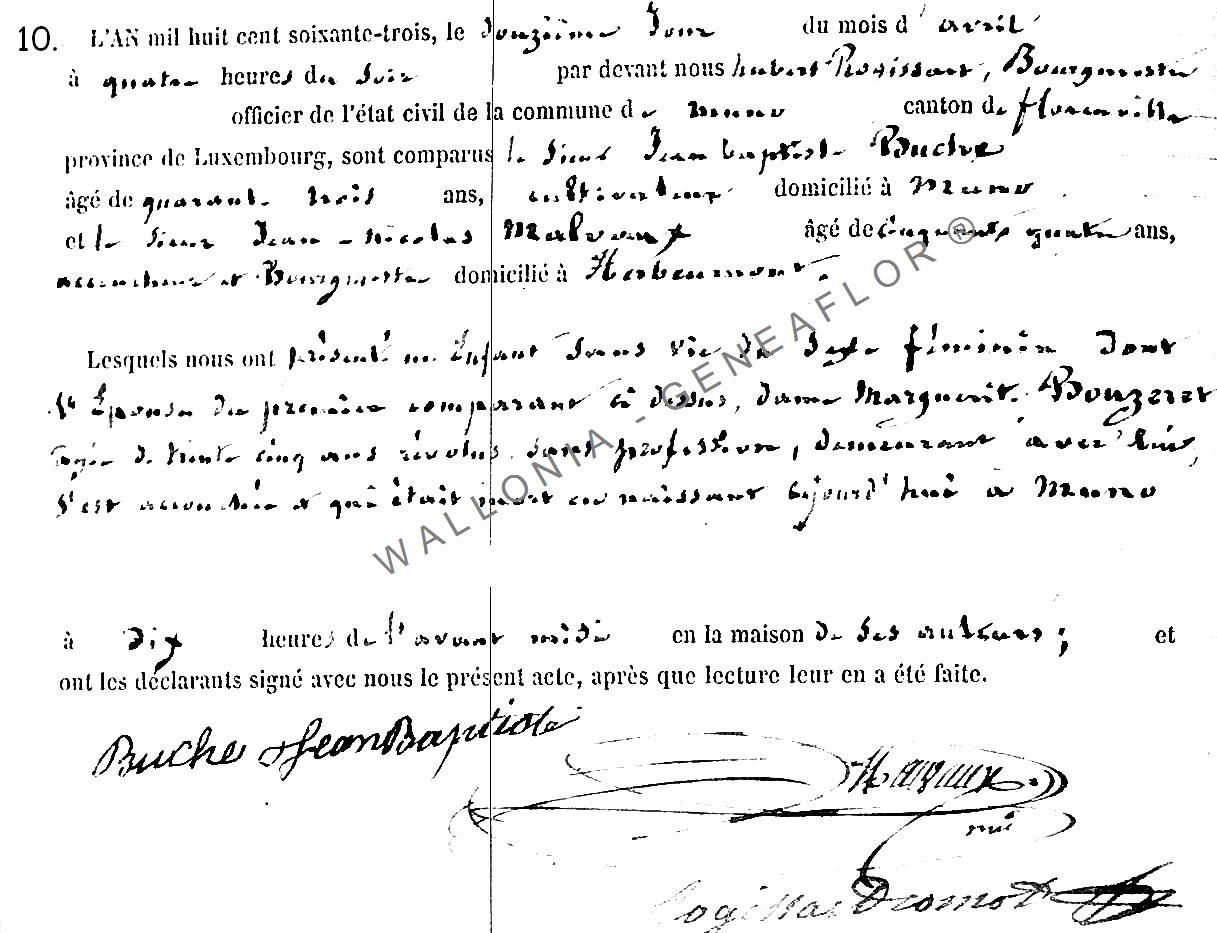 10. L'AN mil huit cent soixante-trois, le douzième Jour du mois d' avril
à quatre heures du Soir par devant nous hubert Bourgmestre
officier de l'état civil de la commune de muno canton de florenville
province de Luxembourg, sont comparus le Sieur Jean baptiste Buche
âgé de quarante trois ans, cultivateur domicilié à Muno
et le Sieur Jean-nicolas âgé de cinquante quatre ans,
accoucheur et Bourgmestre domicilié à Herbeumont.
Lesquels nous ont présenté un Enfant Sans vie du Sexe féminin dont
l'Epouse du premier comparant ci dessus, dame Marguerite
agée de trente cinq ans révolus, sans profession, demeurant avec lui,
S'est accouchée et qui était mort en naissant à Muno
à dix heures de l'avant midi en la maison de Ses auteurs; et
ont les déclarants signé avec nous le présent acte, après que lecture leur en a été faite.
Buche Jean Baptiste
WALLONIA - GENEAFLOR ®